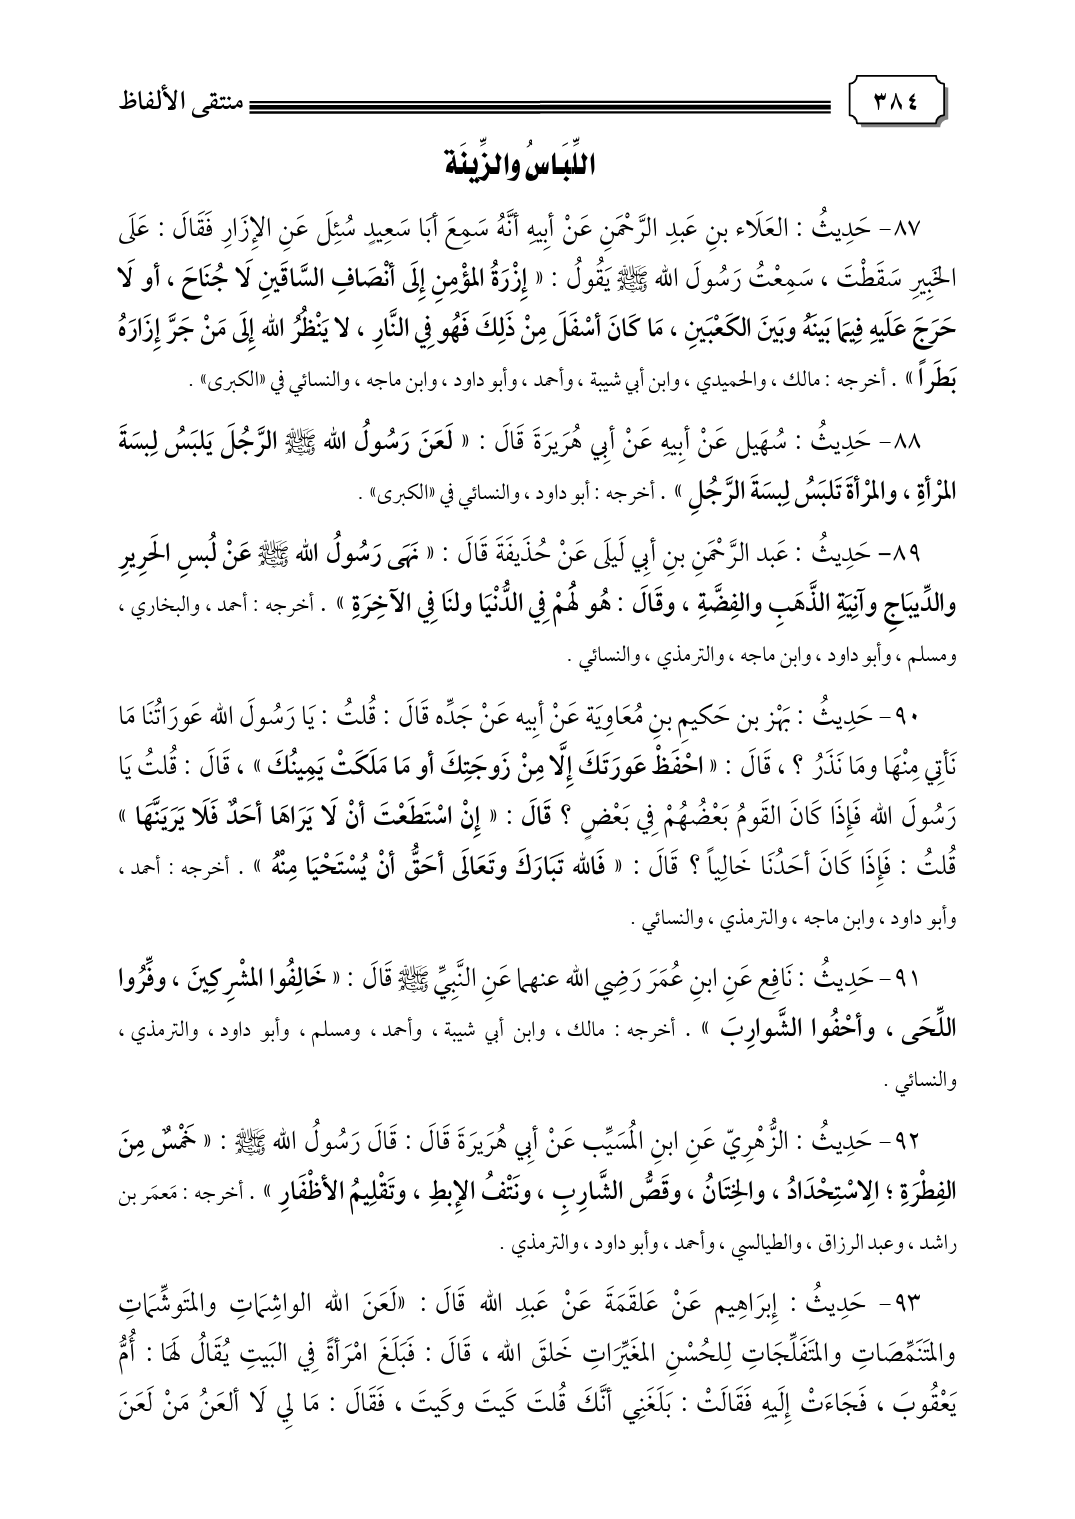 ٣٨٤ منتقى الألفاظ
اللِّبَاسُ والزِّينَة
٨٧- حَدِيثُ : العَلَاء بنِ عَبدِ الرَّحْمَنِ عَنْ أبِيهِ أنَّهُ سَمِعَ أبَا سَعِيدٍ سُئِلَ عَنِ الإزَارِ فَقَالَ : عَلَى
الخَبِيرِ سَقَطْتَ ، سَمِعْتُ رَسُولَ الله ﷺ يَقُولُ : « إِزْرَةُ المؤْمِنِ إلَى أنْصَافِ السَّاقَينِ لَا جُنَاحَ ، أو لَا
حَرَجَ عَلَيهِ فِيمَا بَينَهُ وبَينَ الكَعْبَينِ ، مَا كَانَ أسْفَلَ مِنْ ذَلِكَ فَهُو فِي النَّارِ ، لا يَنْظُرُ الله إلَى مَنْ جَرَّ إزَارَهُ
بَطَراً » . أخرجه : مالك ، والحميدي ، وابن أبي شيبة ، وأحمد ، وأبو داود ، وابن ماجه ، والنسائي في «الكبرى» .
٨٨- حَدِيثُ : سُهَيل عَنْ أبِيهِ عَنْ أبِي هُرَيرَةَ قَالَ : « لَعَنَ رَسُولُ الله ﷺ الرَّجُلَ يَلبَسُ لِبسَةَ
المرْأةِ ، والمرْأةَ تَلبَسُ لِبسَةَ الرَّجُلِ » . أخرجه : أبو داود ، والنسائي في «الكبرى» .
٨٩- حَدِيثُ : عَبد الرَّحْمَنِ بنِ أبِي لَيلَى عَنْ حُذَيفَةَ قَالَ : « نَهَى رَسُولُ الله ﷺ عَنْ لُبسِ الحَرِيرِ
والدِّيبَاجِ وآنِيَةِ الذَّهَبِ والفِضَّةِ ، وقَالَ : هُو لَهُمْ فِي الدُّنْيَا ولنَا فِي الآخِرَةِ » . أخرجه : أحمد ، والبخاري ،
ومسلم ، وأبو داود ، وابن ماجه ، والترمذي ، والنسائي .
٩٠- حَدِيثُ : بَهْز بن حَكِيمِ بنِ مُعَاوِيَة عَنْ أبِيه عَنْ جَدِّه قَالَ : قُلتُ : يَا رَسُولَ الله عَورَاتُنَا مَا
نَأتِي مِنْهَا ومَا نَذَرُ ؟ ، قَالَ : « احْفَظْ عَورَتَكَ إلَّا مِنْ زَوجَتِكَ أو مَا مَلَكَتْ يَمِينُكَ » ، قَالَ : قُلتُ يَا
رَسُولَ الله فَإذَا كَانَ القَومُ بَعْضُهُمْ فِي بَعْضٍ ؟ قَالَ : « إنْ اسْتَطَعْتَ أنْ لَا يَرَاهَا أحَدٌ فَلَا يَرَيَنَّهَا »
قُلتُ : فَإذَا كَانَ أحَدُنَا خَالِياً ؟ قَالَ : « فَالله تَبَارَكَ وتَعَالَى أحَقُّ أنْ يُسْتَحْيَا مِنْهُ » . أخرجه : أحمد ،
وأبو داود ، وابن ماجه ، والترمذي ، والنسائي .
٩١- حَدِيثُ : نَافِع عَنِ ابنِ عُمَرَ رَضِي الله عنهما عَنِ النَّبِيِّ ﷺ قَالَ : « خَالِفُوا المشْرِكِينَ ، وفِّرُوا
اللِّحَى ، وأحْفُوا الشَّوارِبَ » . أخرجه : مالك ، وابن أبي شيبة ، وأحمد ، ومسلم ، وأبو داود ، والترمذي ،
والنسائي .
٩٢- حَدِيثُ : الزُّهْرِيّ عَنِ ابنِ المُسَيِّب عَنْ أبِي هُرَيرَةَ قَالَ : قَالَ رَسُولُ الله ﷺ : « خَمْسٌ مِنَ
الفِطْرَةِ ؛ الِاسْتِحْدَادُ ، والخِتَانُ ، وقَصُّ الشَّارِبِ ، ونَتْفُ الإبِطِ ، وتَقْلِيمُ الأظْفَارِ » . أخرجه : مَعمَر بن
راشد ، وعبد الرزاق ، والطيالسي ، وأحمد ، وأبو داود ، والترمذي .
٩٣- حَدِيثُ : إبرَاهِيم عَنْ عَلقَمَةَ عَنْ عَبدِ الله قَالَ : «لَعَنَ الله الواشِمَاتِ والمتَوشِّمَاتِ
والمتَنَمِّصَاتِ والمتَفَلِّجَاتِ لِلحُسْنِ المغَيِّرَاتِ خَلقَ الله ، قَالَ : فَبَلَغَ امْرَأةً فِي البَيتِ يُقَالُ لَهَا : أُمُّ
يَعْقُوبَ ، فَجَاءَتْ إلَيهِ فَقَالَتْ : بَلَغَنِي أنَّكَ قُلتَ كَيتَ وكَيتَ ، فَقَالَ : مَا لِي لَا ألعَنُ مَنْ لَعَنَ